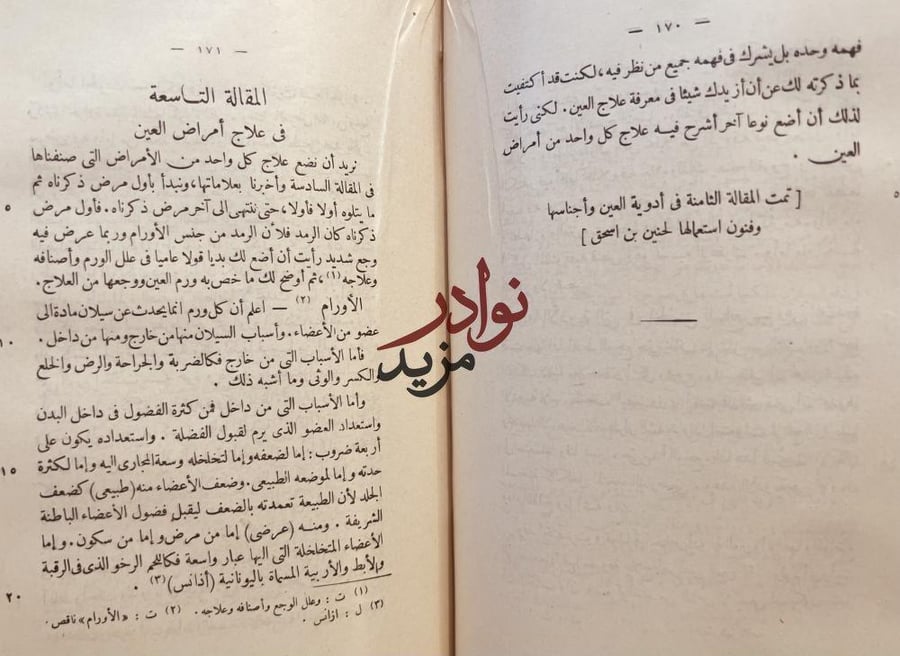 — ١٧٠ —
فهمه وحده بل يشرك فى فهمه جميع من نظر فيه، لكنت قد أ كتفيت
بما ذكرته لك عن أن أزيدك شيئا فى معرفة علاج العين. لكنى رأيت
لذلك أن أضع نوعا آخر أشرح فيه علاج كل واحد من أمراض
العين .
[ تمت المقالة الثامنة فى أدوية العين وأجناسها
وفنون استعمالها لحنين بن اسحق ]
٥
— ١٧١ —
المقالة التاسعة
فى علاج أمراض العين
نريد أن نضع علاج كل واحد من الأمراض التى صنفناها
فى المقالة السادسة وأخبرنا بعلاماتها، ونبدأ بأول مرض ذكرناه ثم
ما يتلوه أولا فأولا، حتى ننتهى الى آخر مرض ذكرناه. فأول مرض
٥
ذكرناه كان الرمد فلأن الرمد من جنس الأورام وربما عرض فيه
وجع شديد رأيت أن أضع لك بديا قولا عاميا فى علل الورم وأصنافه
وعلاجه (١)، ثم أوضح لك ما خص به ورم العين ووجعها من العلاج.
الأورام (٢) — اعلم أن كل ورم انما يحدث عن سيلان مادة الى
عضو من الأعضاء. وأسباب السيلان منها من خارج ومنها من داخل.
١٠
فأما الأسباب التى من خارج فكالضربة والجراحة والرض والخلع
والكسر والوثى وما أشبه ذلك .
وأما الأسباب التى من داخل فمن كثرة الفضول فى داخل البدن
واستعداد العضو الذى يرم لقبول الفضلة . واستعداده يكون على
أربعة ضروب: إما لضعفه وإما لتخلخله وسعة المجارى اليه وإما لكثرة
١٥
حدته وإما لموضعه الطبيعى. وضعف الأعضاء منه (طبيعى) كضعف
الجلد لأن الطبيعة تعمدته بالضعف ليقبل فضول الأعضاء الباطنة
الشريفة . ومنه (عرضى) إما من مرض وإما من سكون. وإما
الأعضاء المتخلخلة التى اليها عبار واسعة فكاللحم الرخو الذى فى الرقبة
والأبط والأربية المسماة باليونانية (أذانس) (٣) .
٢٠
(١) ت : وعلل الوجع وأصنافه وعلاجه. (٢) ت : «الأورام» ناقص.
(٣) ل : اذانس .
نوادر
مزيد